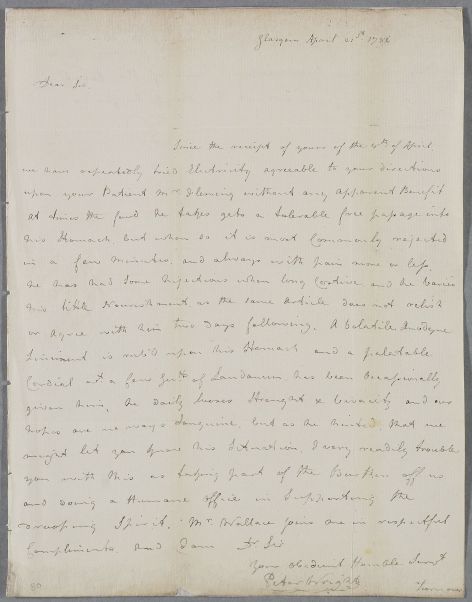 Glasgow April 21st 178
Dear Sir,
Since the receipt of yours of the 4th of April
we have repeatedly tried Electricity agreeable to your directions
upon your Patient Mr Fleming without any apparent Benefit
at times the food he takes gets a tolerable free passage into
his Stomach, but when so it is most Commonly rejected
in a few minutes, and always with pain more or less.
he has had some Injections when long Costive and he varies
his little Nourishment as the same Article does not relish
or agree with him two Days following. A Volatile Anodyne
Liniment is rub'd upon his Stomach and a palatable
Cordial a few of Laudanum, has been Occasionally
given him, he daily looses Strenght & Vivacity and our
hopes are no ways Sanguine, but as he wished that we
might let you know his Situation, I very readily trouble
you with this as taking part of the Burthen off us
and doing a Humane office in Supporting the
drooping Spirit. Mr. Wallace joins me in respectful
Compliments, and I am Dr Sir
Your obedient Humble Servt
Peter Wright
80